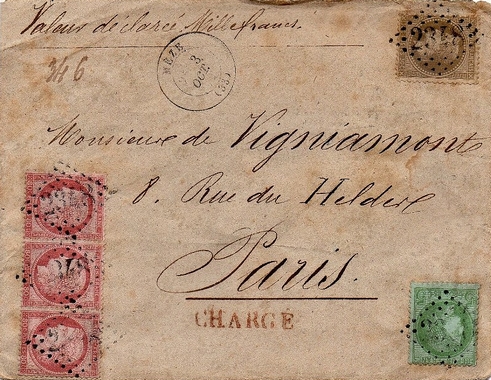 Valeur déclarée Mille francs.
2348
346
MEZE
3
OCT.
(33)
Monsieur de Vigniamont
8. Rue du Helder
Paris.
CHARGÉ